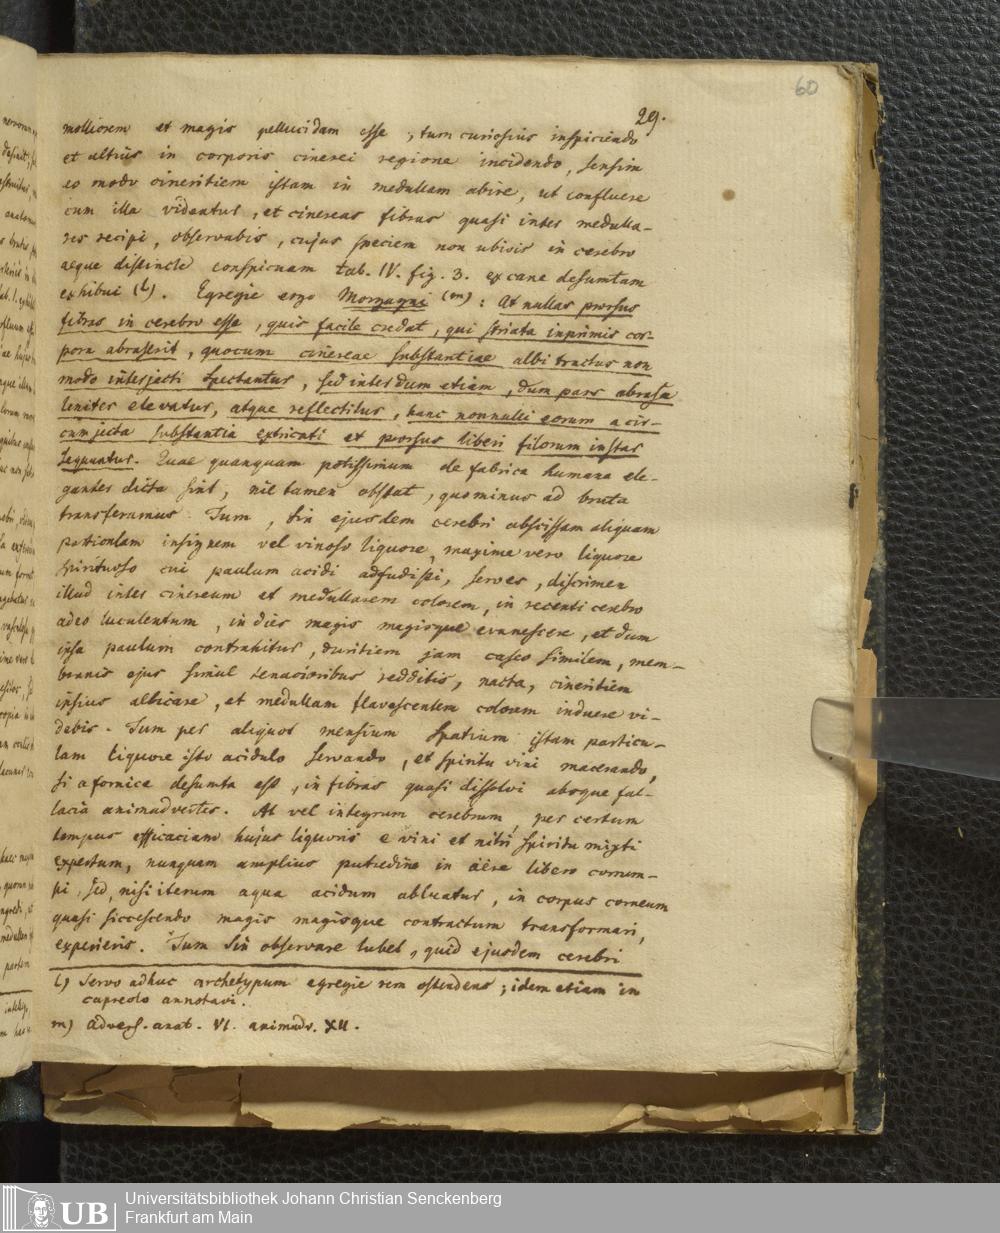 60
29.
molliorem et magis pellucidam esse, tum curiosius inspiciendo
et altius in corporis cinerei regione incidendo, sensim
eo modo cineritiem istam in medullam abire, ut confluere
cum illa videantur, et cinereas fibras quasi inter medulla-
res recipi, observabis, cujus speciem non ubivis in cerebro
aeque distincte conspicuam tab. IV. fig. 3. ex cane desumtam
exhibui (l). Egregie ergo Morgagni (m): At nullas prorsus
fibras in cerebro esse, quis facile credat, qui striata inprimis cor-
pora abraserit, quocum cinereae substantiae albi tractus non
modo interjecti spectantur, sed interdum etiam, dum pars abrasa
leniter elevatur, atque reflectitur, hanc nonnulli eorum a cir-
cumjecta substantia extricati et prorsus liberi filorum instar
sequuntur. Quae quanquam potissimum de fabrica humana ele-
ganter dicta sint, nil tamen obstat, quominus ad bruta
transferamus. Tum, sin ejusdem cerebri abscissam aliquam
portionlam insignem vel vinoso liquore, maxime vero liquore
spirituoso cui paulum acidi adfudisti, serves, discrimen
illud inter cinereum et medullarem colorem, in recenti cerebro
adeo luculentum, in dies magis magisque evanescere, et dum
ipsa paulum contrahitur, duritiem jam caseo similem, mem-
branis ejus simul tenacioribus redditis, nacta, cineritiem
ipsius albicare, et medullam flavescentem colorem induere vi-
debis. Tum per aliquot mensium spatium istam particu-
lam liquore isto acidulo servando, et spiritu vini macerando,
si a fornice desumta est, in fibras quasi dissolvi absque fal-
lacia animadvertes. At vel integrum cerebrum, per certum
tempus efficaciam hujus liquoris e vini et nitri spiritu mixti
expertum, nunquam amplius putredine in aëre libero corrum-
pi, sed, nisi iterum aqua acidum abluatur, in corpus corneum
quasi siccescendo magis magisque contractum transformari,
experieris. Tum sin observare lubet, quid ejusdem cerebri
l) Servo adhuc archetypum egregie rem ostendens; idem etiam in
capreolo annotavi.
m) Advers. anat. VI. animadv. XII.
UB
Universitätsbibliothek Johann Christian Senckenberg
Frankfurt am Main